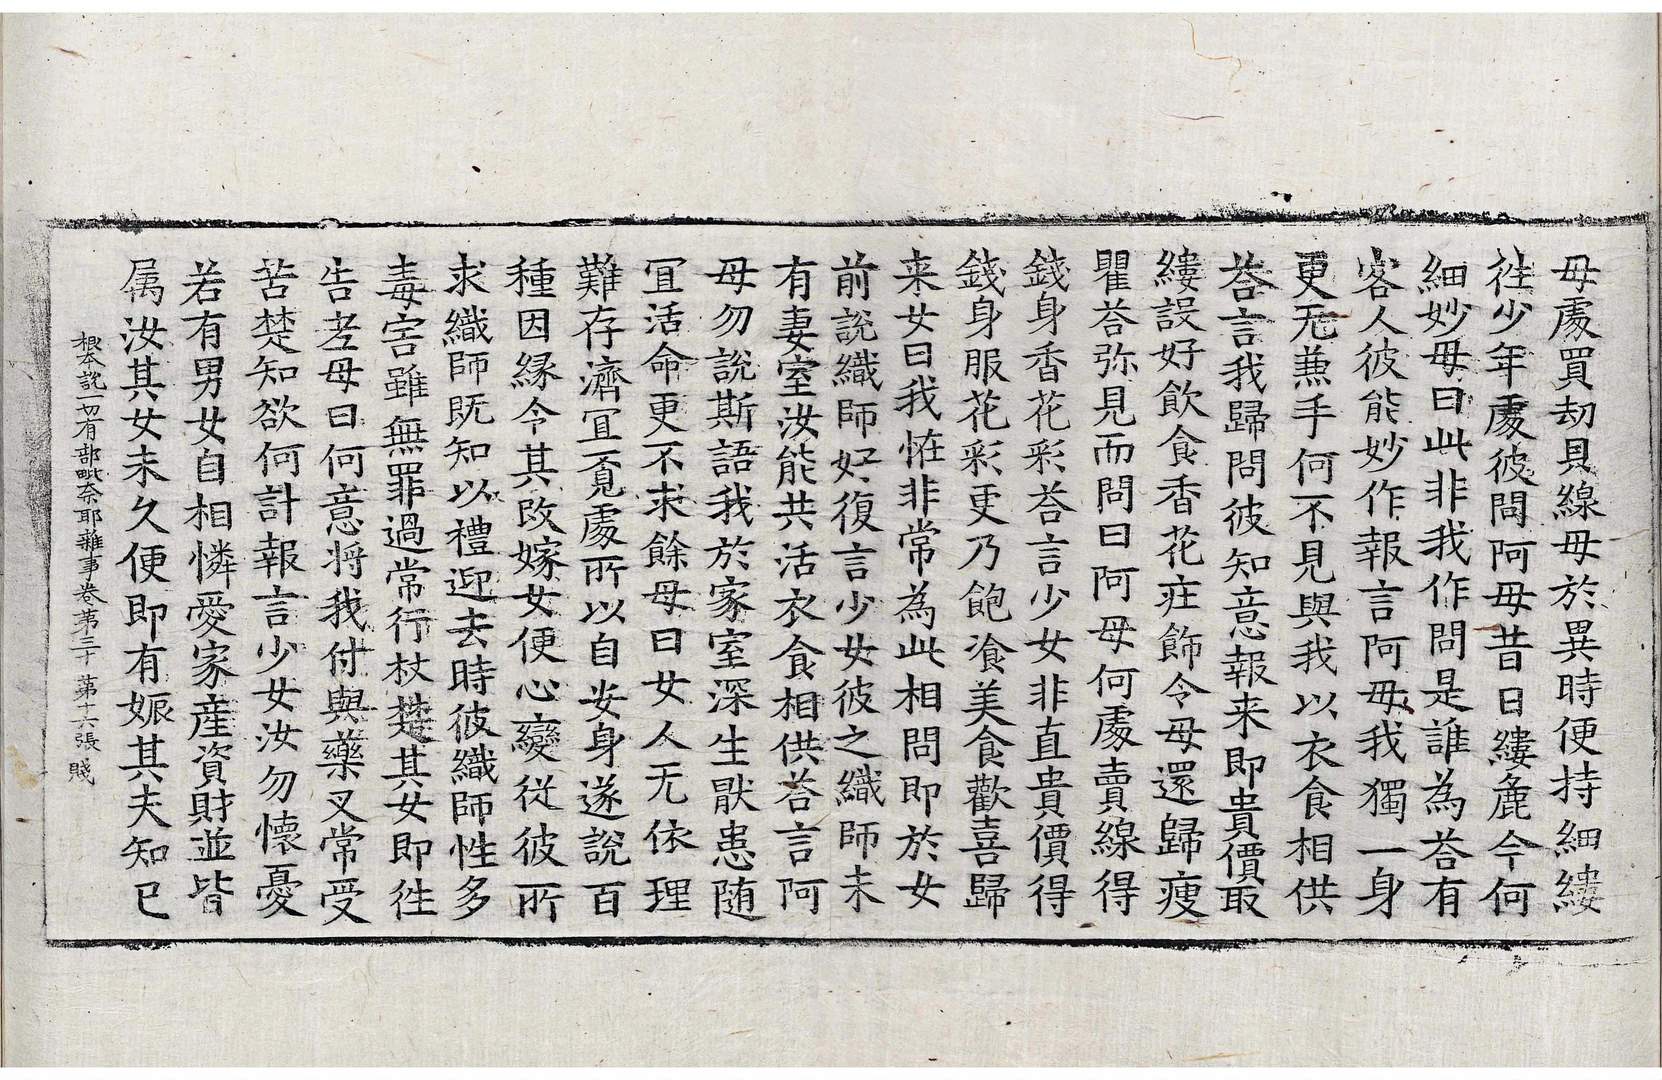 母處買劫具線母於異時便持細縷
往少年處彼問阿母昔日縷麁今何
細妙母曰此非我作問是誰為荅有
客人彼能妙作報言阿母我獨一身
更无兼手何不見與我以衣食相供
荅言我歸問彼知意報来即貴價取
縷設好飲食香花莊飾令母還歸瘦
瞿荅弥見而問曰阿母何處賣線得
錢身香花彩荅言少女非直貴價得
錢身服花彩更乃飽湌美食歡喜歸
来女曰我恠非常為此相問即於女
前說織師好復言少女彼之織師未
有妻室汝能共活衣食相供荅言阿
母勿說斯語我於家室深生猒患随
冝活命更不求餘母曰女人无依理
難存濟冝覓處所以自安身遂說百
種因縁令其改嫁女便心變從彼所
求織師既知以禮迎去時彼織師性多
毒害雖無罪過常行杖楚其女即往
告老母曰何意将我付與藥叉常受
苦楚知欲何計報言少女汝勿懷憂
若有男女自相憐愛家產資財並皆
属汝其女未久便即有娠其夫知已
根本說一切有部毗奈耶雜事卷第三十 第十六張 賤